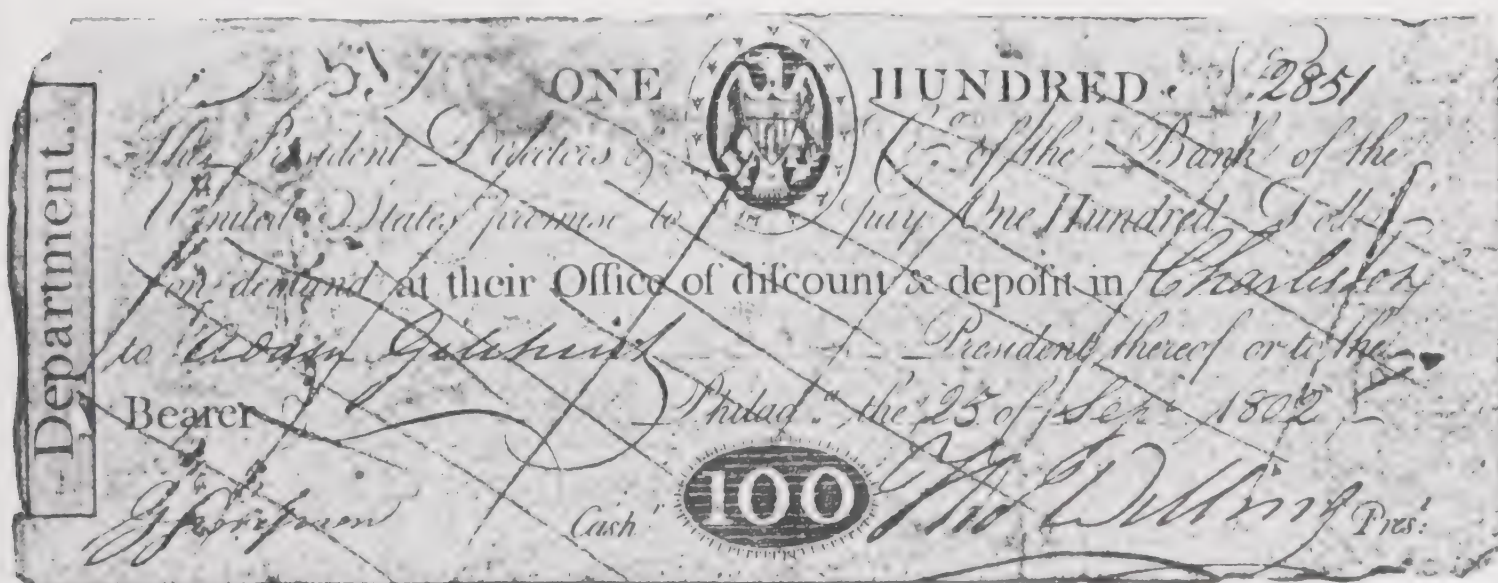 Department.
ONE HUNDRED. 2851
The President Directors & Cº of the Bank of the
United States promise to pay One Hundred Doll
on demand at their Office of diſcount & depoſit in Charleston
to Adam Gilchrist President thereof or to the
Bearer Philadª the 25 of Sepr 1802
G Simpson Cashr 100 Tho Willing Prest